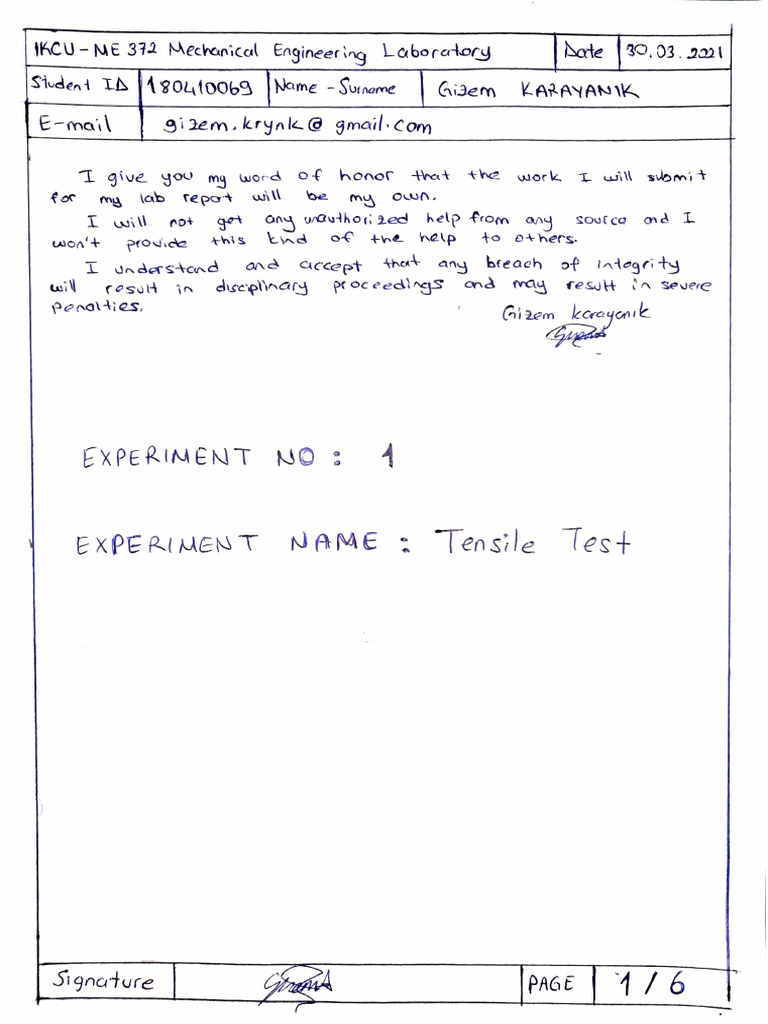 IKCU - ME 372 Mechanical Engineering Laboratory Date 30.03.2021
Student ID 180410069 Name - Surname Gizem KARAYANIK
E-mail gizem.krynk@gmail.com
I give you my word of honor that the work I will submit
for my lab report will be my own.
I will not get any unauthorized help from any source and I
won't provide this kind of the help to others.
I understand and accept that any breach of integrity
will result in disciplinary proceedings and may result in severe
penalties.
Gizem Karayanık
EXPERIMENT NO : 1
EXPERIMENT NAME : Tensile Test
Signature PAGE 1 / 6